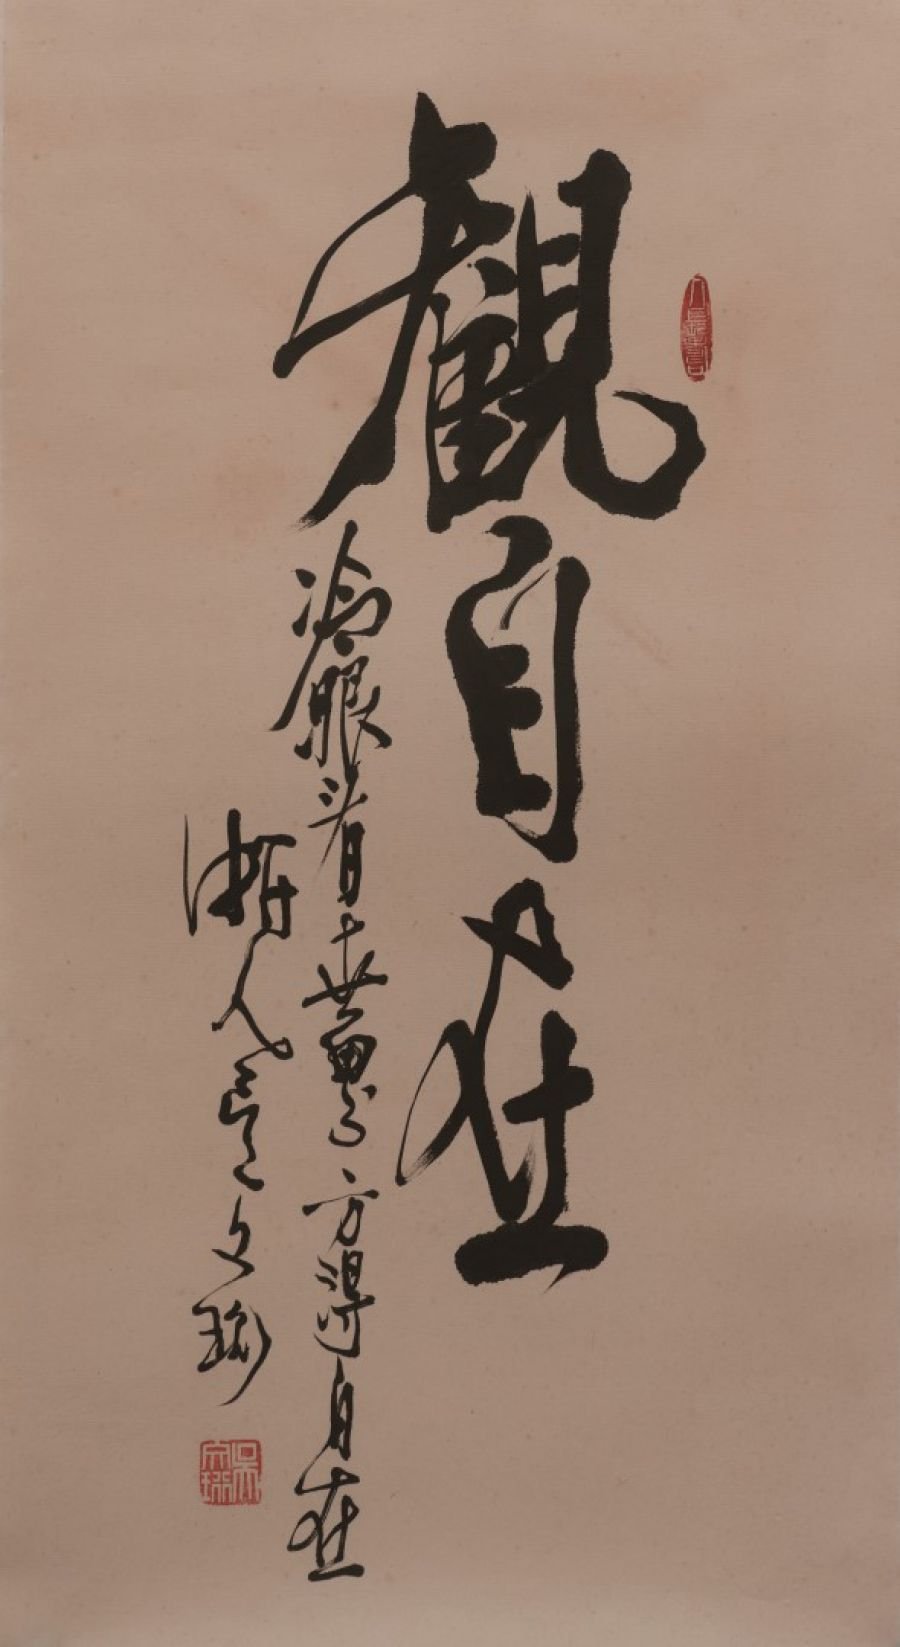 觀自在
冷眼看世界方得自在
浙人吳文珍